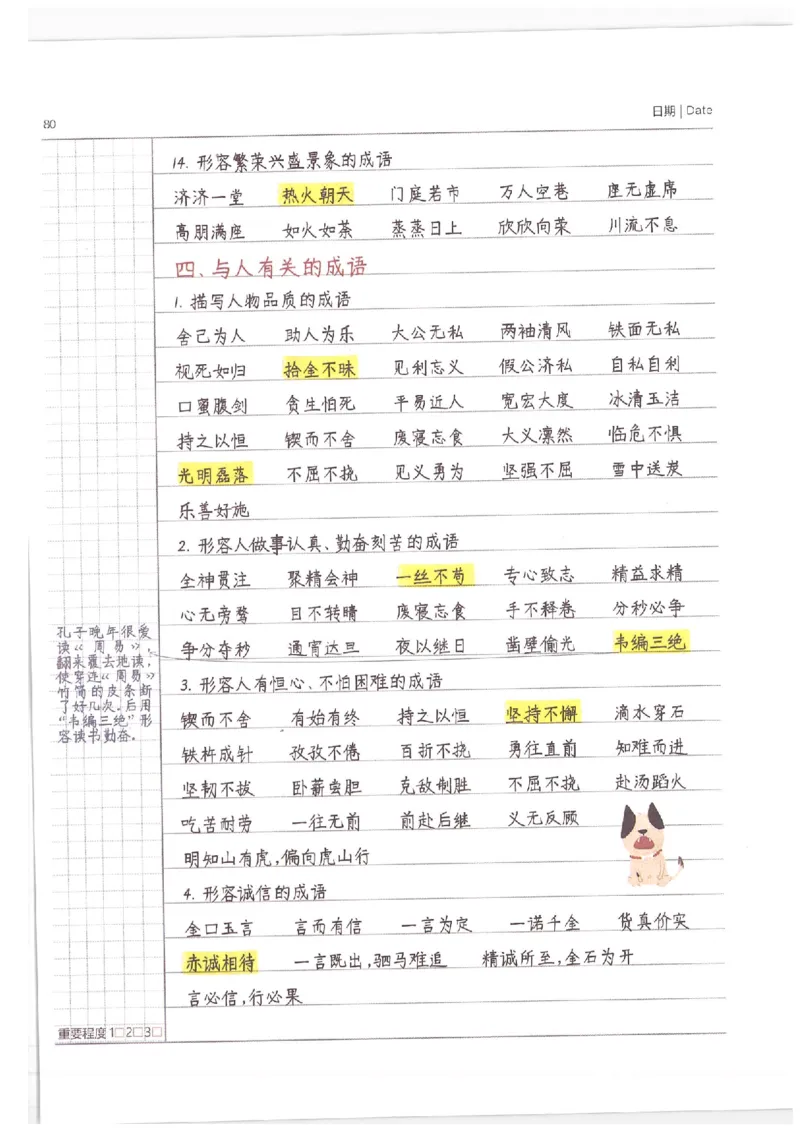 80
日期 | Date
14. 形容繁荣兴盛景象的成语
济济一堂 热火朝天 门庭若市 万人空巷 座无虚席
高朋满座 如火如荼 蒸蒸日上 欣欣向荣 川流不息
四、与人有关的成语
1. 描写人物品质的成语
舍己为人 助人为乐 大公无私 两袖清风 铁面无私
视死如归 拾金不昧 见利忘义 假公济私 自私自利
口蜜腹剑 贪生怕死 平易近人 宽宏大度 冰清玉洁
持之以恒 锲而不舍 废寝忘食 大义凛然 临危不惧
光明磊落 不屈不挠 见义勇为 坚强不屈 雪中送炭
乐善好施
2. 形容人做事认真、勤奋刻苦的成语
全神贯注 聚精会神 一丝不苟 专心致志 精益求精
心无旁骛 目不转睛 废寝忘食 手不释卷 分秒必争
争分夺秒 通宵达旦 夜以继日 凿壁偷光 韦编三绝
孔子晚年很爱
读《周易》,
翻来覆去地读,
使穿连《周易》
竹简的皮条断
了好几次。后用
“韦编三绝”形
容读书勤奋。
3. 形容人有恒心、不怕困难的成语
锲而不舍 有始有终 持之以恒 坚持不懈 滴水穿石
铁杵成针 孜孜不倦 百折不挠 勇往直前 知难而进
坚韧不拔 卧薪尝胆 克敌制胜 不屈不挠 赴汤蹈火
吃苦耐劳 一往无前 前赴后继 义无反顾
明知山有虎,偏向虎山行
4. 形容诚信的成语
金口玉言 言而有信 一言为定 一诺千金 货真价实
赤诚相待 一言既出,驷马难追 精诚所至,金石为开
言必信,行必果
重要程度 1□2□3□